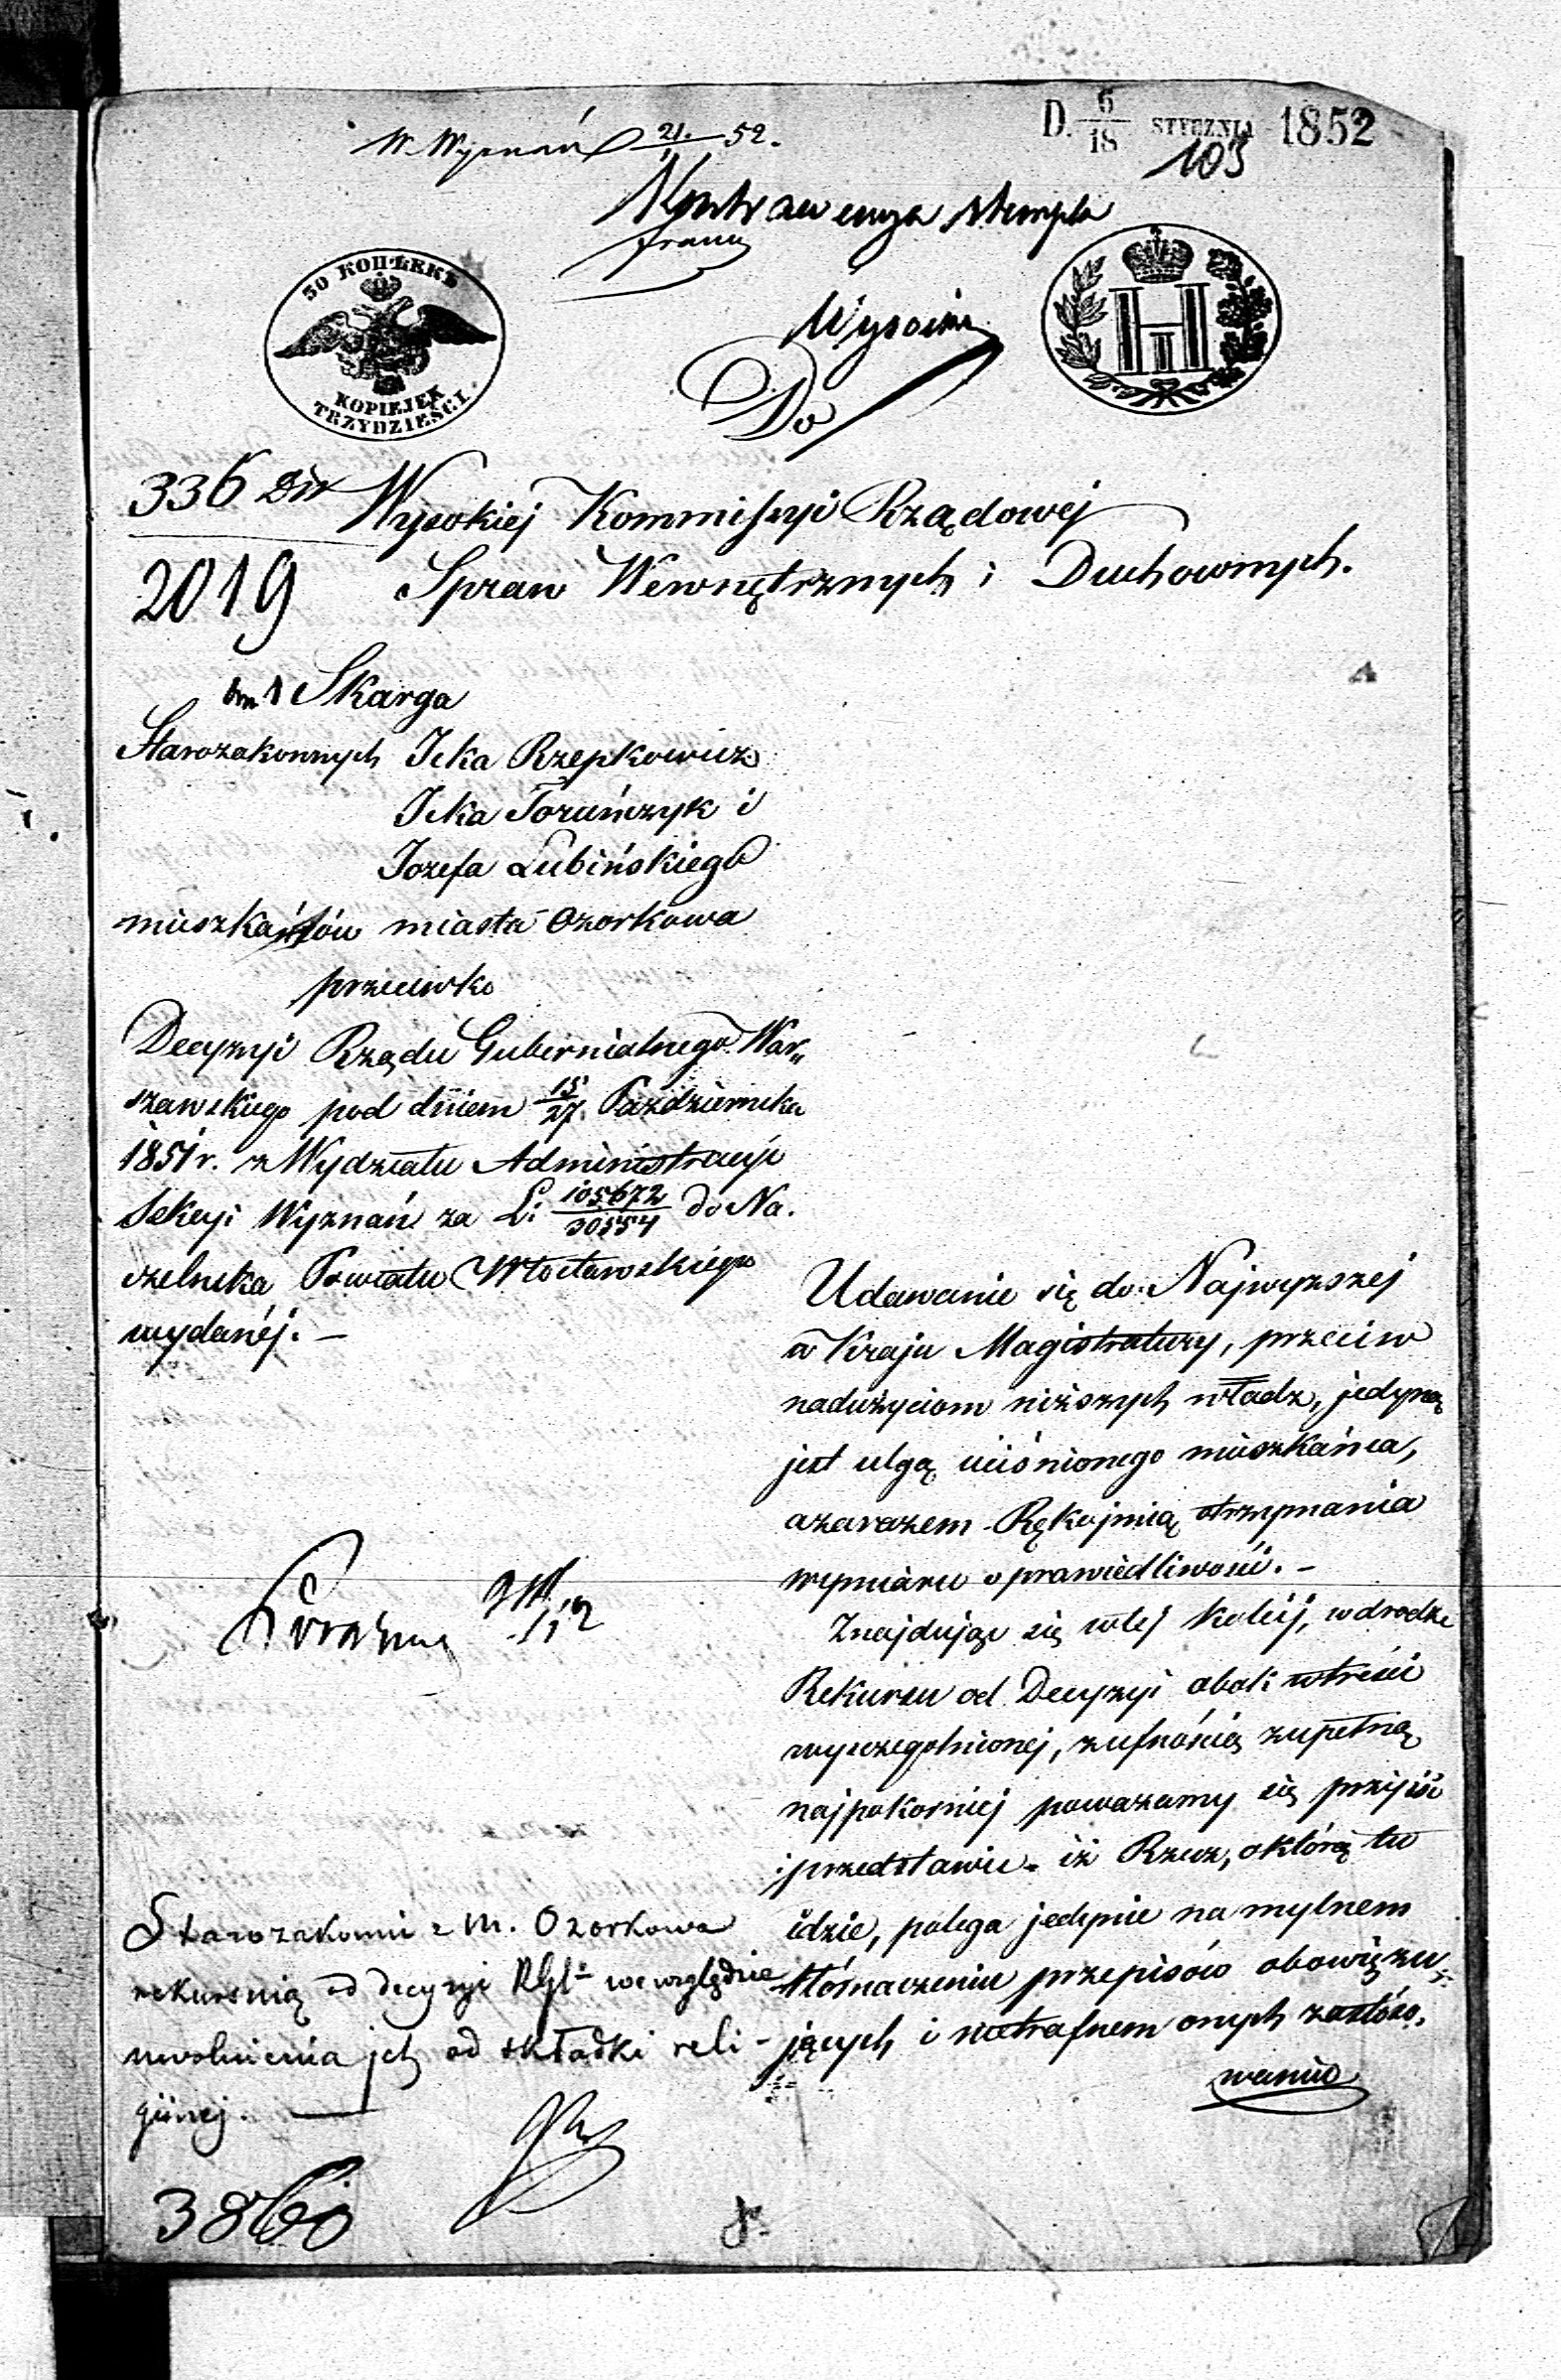 W. Wyznań 21/1 52.
D. 6/18 STYCZNIA 1852
103
Kontrawencya stempla
franc
30 КОПѢЕКЪ
KOPIEJEK
TRZYDZIEŚCI.
H
II
Do
336
2019
Wysokiej Kommissyi Rządowej
Spraw Wewnętrznych i Duchownych.
Skarga
Starozakonnych Icka Rzepkowicz
Icka Toruńczyk i
Jozefa Lubińskiego
mieszkańców miasta Ozorkowa
przeciwko
Decyzyi Rządu Gubernialnego War„
szawskiego pod dniem 15/27 Października
1851 r. z Wydziału Administracyi
Sekcyi Wyznań za L: 105672/30554 do Na.
czelnika Powiatu Włocławskiego
wydanéj. —
Udawanie się do Najwyzszej
w Kraju Magistratury, przeciw
nadużyciom niższych władz, jedyną
jest ulgą uciśnionego mieszkańca,
azarazem Rękojmią otrzymania
wymiaru sprawiedliwości. —
Znajdując się wtej koléij, wdrodze
Rekursu od Decyzyi obok wtreści
wyszczegolnionej, zufnością zupełną
najpokorniej poważamy się przyjść
i przedstawić iż Rzecz, októrą tu
idzie, polega jedynie na mylnem
tłómaczeniu przepisów obowięzu„
jących i nietrafnem onych zastóso.
waniu
Starozakonni z M. Ozorkowa
rekursują od decyzyi RGL we względzie
uwolnienia ich od składki reli-
giinej. —
3860